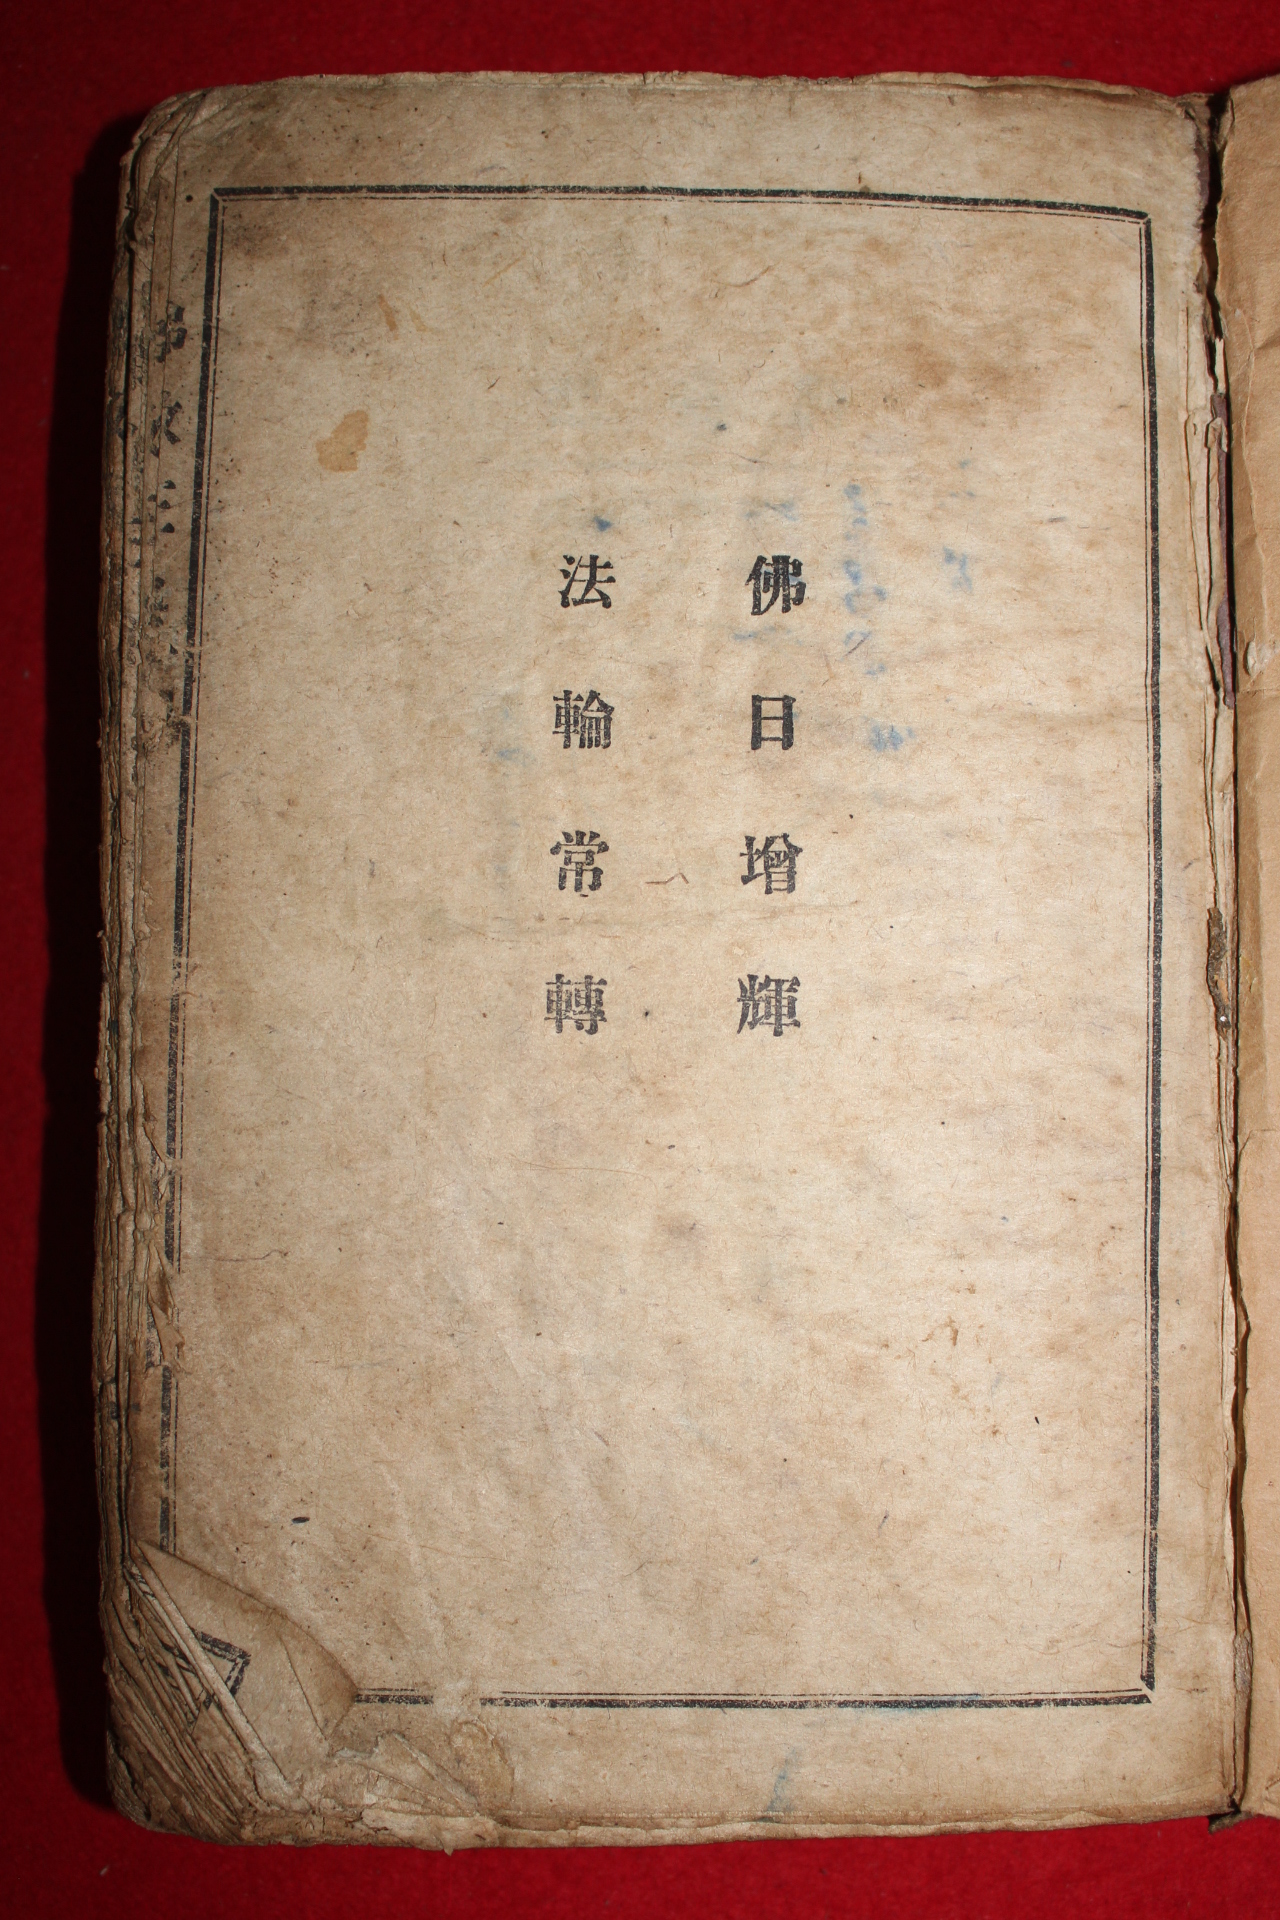 佛日增輝
法輪常轉